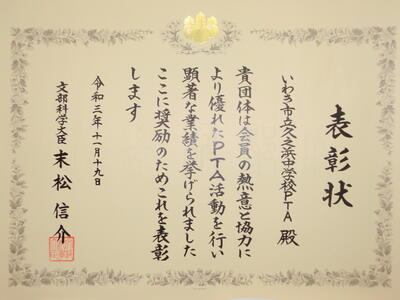 表彰状
いわき市立久之浜中学校PTA 殿
貴団体は会員の熱意と協力に
より優れたPTA活動を行い
顕著な業績を挙げられました
ここに奨励のためこれを表彰
します
令和三年十一月十九日
文部科学大臣 末松信介